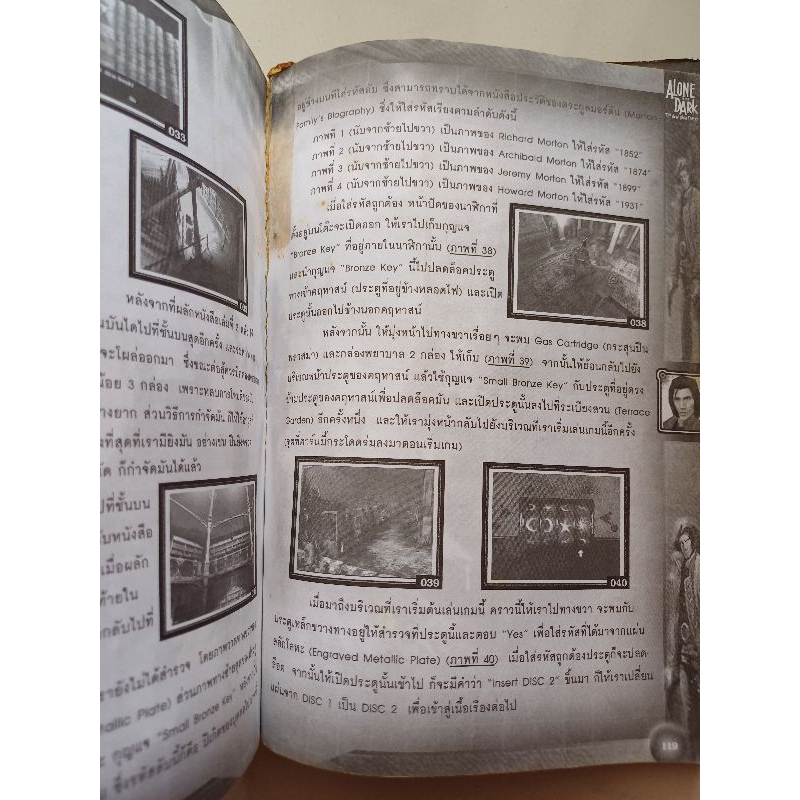 033
หลังจากที่ผลักหนังสือเล่มที่
บันไดไปที่ชั้นบนสุดอีกครั้ง
จะโผล่ออกมา
น้อย 3 กล่อง เพราะหลบการโจมตี
างยาก ส่วนวิธีการกำจัดมัน ก็ให้
งที่สุดที่เรามียิงมัน อย่างเช่น
ก็กำจัดมันได้แล้ว
ปที่ชั้นบน
ับหนังสือ
เมื่อผลัก
ท้ายใน
กลับไปที่
รายังไม่ได้สำรวจ
allic Plate) ส่วนภาพทางซ้าย
กุญแจ "Small Bronze Key"
ซึ่งรหัสลับนี้ก็คือ
ALONE
DARK
อยู่ข้างบนที่ใส่รหัสลับ ซึ่งสามารถทราบได้จากหนังสือประวัติของตระกูลมอร์ตัน (Morton
Family's Biography) ซึ่งให้ใส่รหัสเรียงตามลำดับดังนี้
ภาพที่ 1 (นับจากซ้ายไปขวา) เป็นภาพของ Richard Morton ให้ใส่รหัส "1852"
ภาพที่ 2 (นับจากซ้ายไปขวา) เป็นภาพของ Archibald Morton ให้ใส่รหัส "1874"
ภาพที่ 3 (นับจากซ้ายไปขวา) เป็นภาพของ Jeremy Morton ให้ใส่รหัส "1899"
ภาพที่ 4 (นับจากซ้ายไปขวา) เป็นภาพของ Howard Morton ให้ใส่รหัส "1931"
เมื่อใส่รหัสถูกต้อง หน้าปัดของนาฬิกาที่
ตั้งอยู่บนโต๊ะจะเปิดออก ให้เราไปเก็บกุญแจ
"Bronze Key" ที่อยู่ภายในนาฬิกานั้น (ภาพที่ 38)
และนำกุญแจ "Bronze Key" นี้ไปปลดล็อคประตู
ทางเข้าคฤหาสน์ (ประตูที่อยู่ข้างหลอดไฟ) และเปิด
ประตูนั้นออกไปข้างนอกคฤหาสน์
038
หลังจากนั้น ให้มุ่งหน้าไปทางขวาเรื่อยๆ จะพบ Gas Cartridge (กระสุนปืน
พลาสม่า) และกล่องพยาบาล 2 กล่อง ให้เก็บ (ภาพที่ 39) จากนั้นให้ย้อนกลับไปยัง
บริเวณหน้าประตูของคฤหาสน์ แล้วใช้กุญแจ "Small Bronze Key" กับประตูที่อยู่ตรง
ข้ามประตูของคฤหาสน์เพื่อปลดล็อคมัน และเปิดประตูนั้นลงไปที่ระเบียงสวน (Terrace
Garden) อีกครั้งหนึ่ง และให้เรามุ่งหน้ากลับไปยังบริเวณที่เราเริ่มเล่นเกมนี้อีกครั้ง
(จุดที่คาร์นบี้กระโดดร่มลงมาตอนเริ่มเกม)
039
040
เมื่อมาถึงบริเวณที่เราเริ่มต้นเล่นเกมนี้ คราวนี้ให้เราไปทางขวา จะพบกับ
ประตูเหล็กขวางทางอยู่ให้สำรวจที่ประตูนี้และตอบ "Yes" เพื่อใส่รหัสที่ได้มาจากแผ่น
สลักโลหะ (Engraved Metallic Plate) (ภาพที่ 40) เมื่อใส่รหัสถูกต้องประตูก็จะปลด-
ล็อค จากนั้นให้เปิดประตูนั้นเข้าไป ก็จะมีคำว่า "Insert DISC 2" ขึ้นมา ก็ให้เราเปลี่ยน
แผ่นจาก DISC 1 เป็น DISC 2 เพื่อเข้าสู่เนื้อเรื่องต่อไป
119